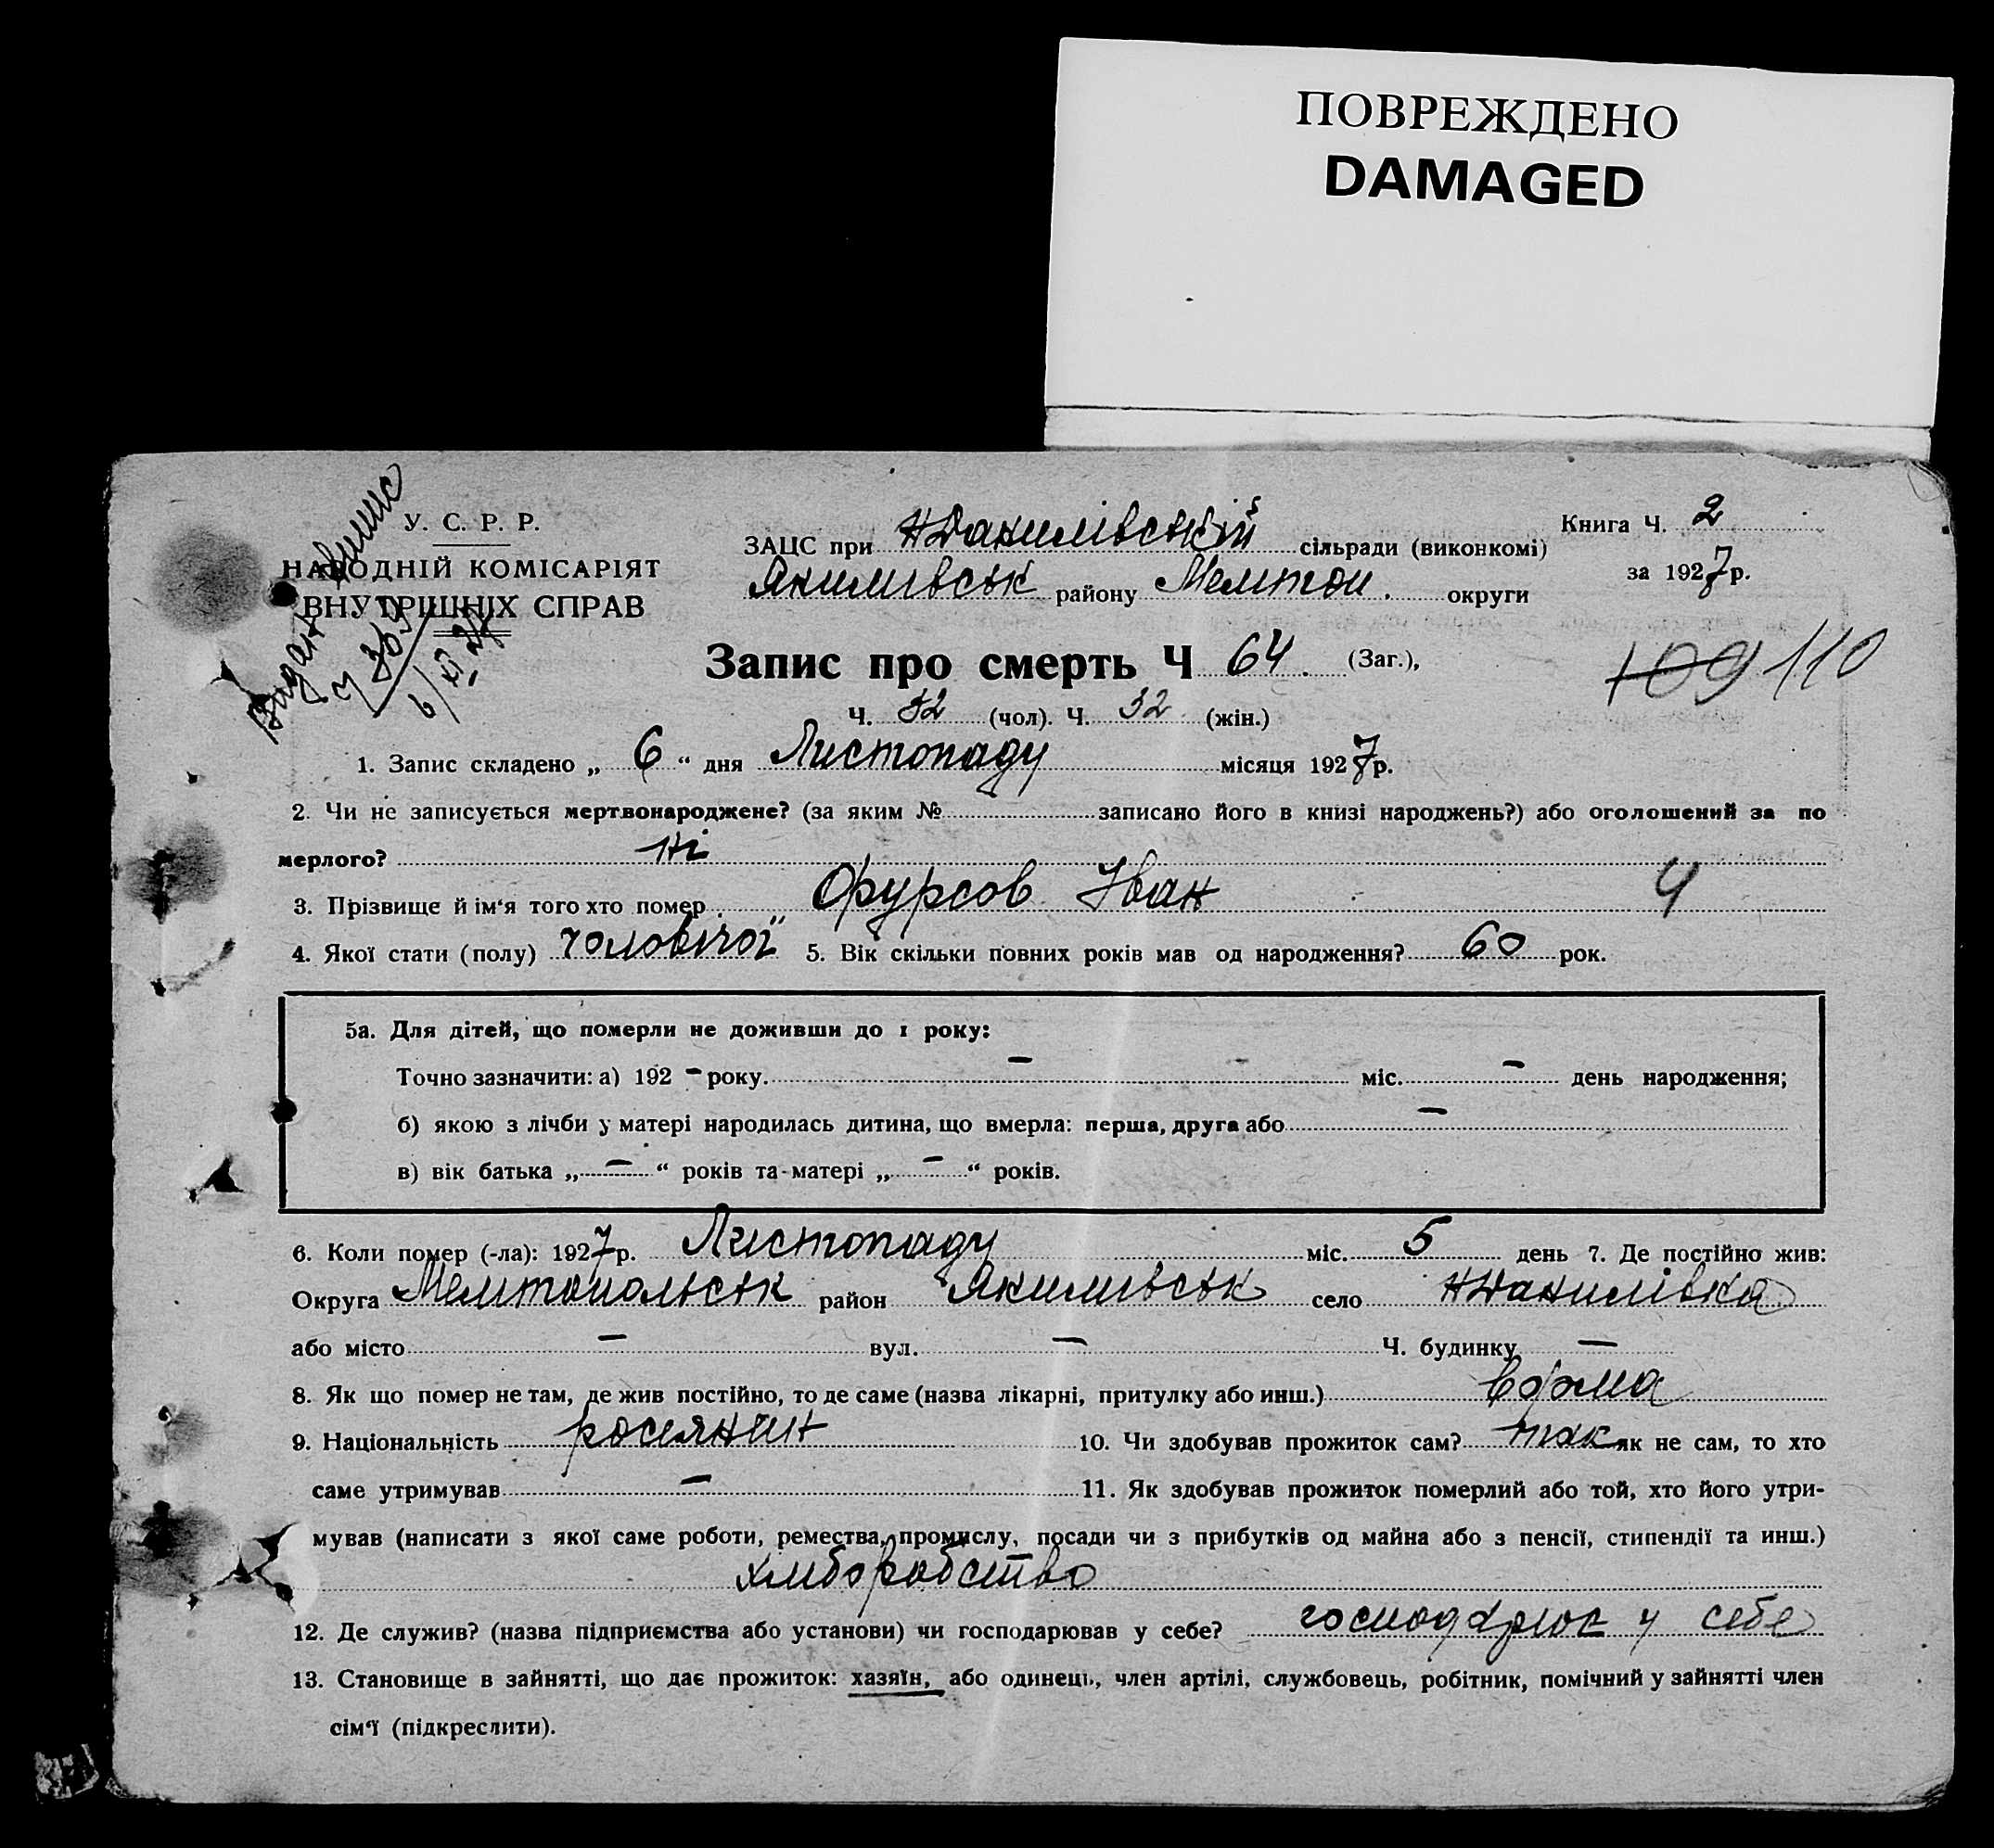 ПОВРЕЖДЕНО
DAMAGED
Видан випис
У. С. Р. Р.
НАРОДНІЙ КОМІСАРІЯТ
ВНУТРІШНІХ СПРАВ
ЗАЦС при НДанилівській сільради (виконкомі)
Якимивськ района Мелитоп. округи
Книга Ч. 2
за 1927 р.
Запис про смерть Ч 64. (Заг.),
109 110
Ч. 32 (чол). Ч. 32 (жін.)
1. Запис складено „ 6 “ дня Листопаду місяця 1927 р.
2. Чи не записується мертвонароджене? (за яким № записано його в книзі народжень?) або оголошений за по
мерлого? Ні
3. Прізвище й ім‘я того хто помер Фурсов Іван Ч
4. Якої стати (полу) чоловічої 5. Вік скільки повних років мав од народження? 60 рок.
5а. Для дітей, що померли не доживши до 1 року:
Точно зазначити: а) 192 – року. – міс. – день народження;
б) якою з лічби у матері народилась дитина, що вмерла: перша, друга або –
в) вік батька „ – “ років та матері „ – “ років.
6. Коли помер (-ла): 1927 р. Листопаду міс. 5 день 7. Де постійно жив:
Округа Мелитопольськ район Якимивськ село НДанилівка
або місто – вул. – Ч. будинку –
8. Як що помер не там, де жив постійно, то де саме (назва лікарні, притулку або инш.) вдома
9. Національність росиянин 10. Чи здобував прожиток сам? так як не сам, то хто
саме утримував – 11. Як здобував прожиток померлий або той, хто його утри-
мував (написати з якої саме роботи, ремества, промислу, посади чи з прибутків од майна або з пенсії, стипендії та инш.)
хлиборобство
12. Де служив? (назва підприємства або установи) чи господарював у себе? господарює у себе
13. Становище в зайнятті, що дає прожиток: хазяїн, або одинець, член артілі, службовець, робітник, помічний у зайнятті член
сім‘ї (підкреслити).